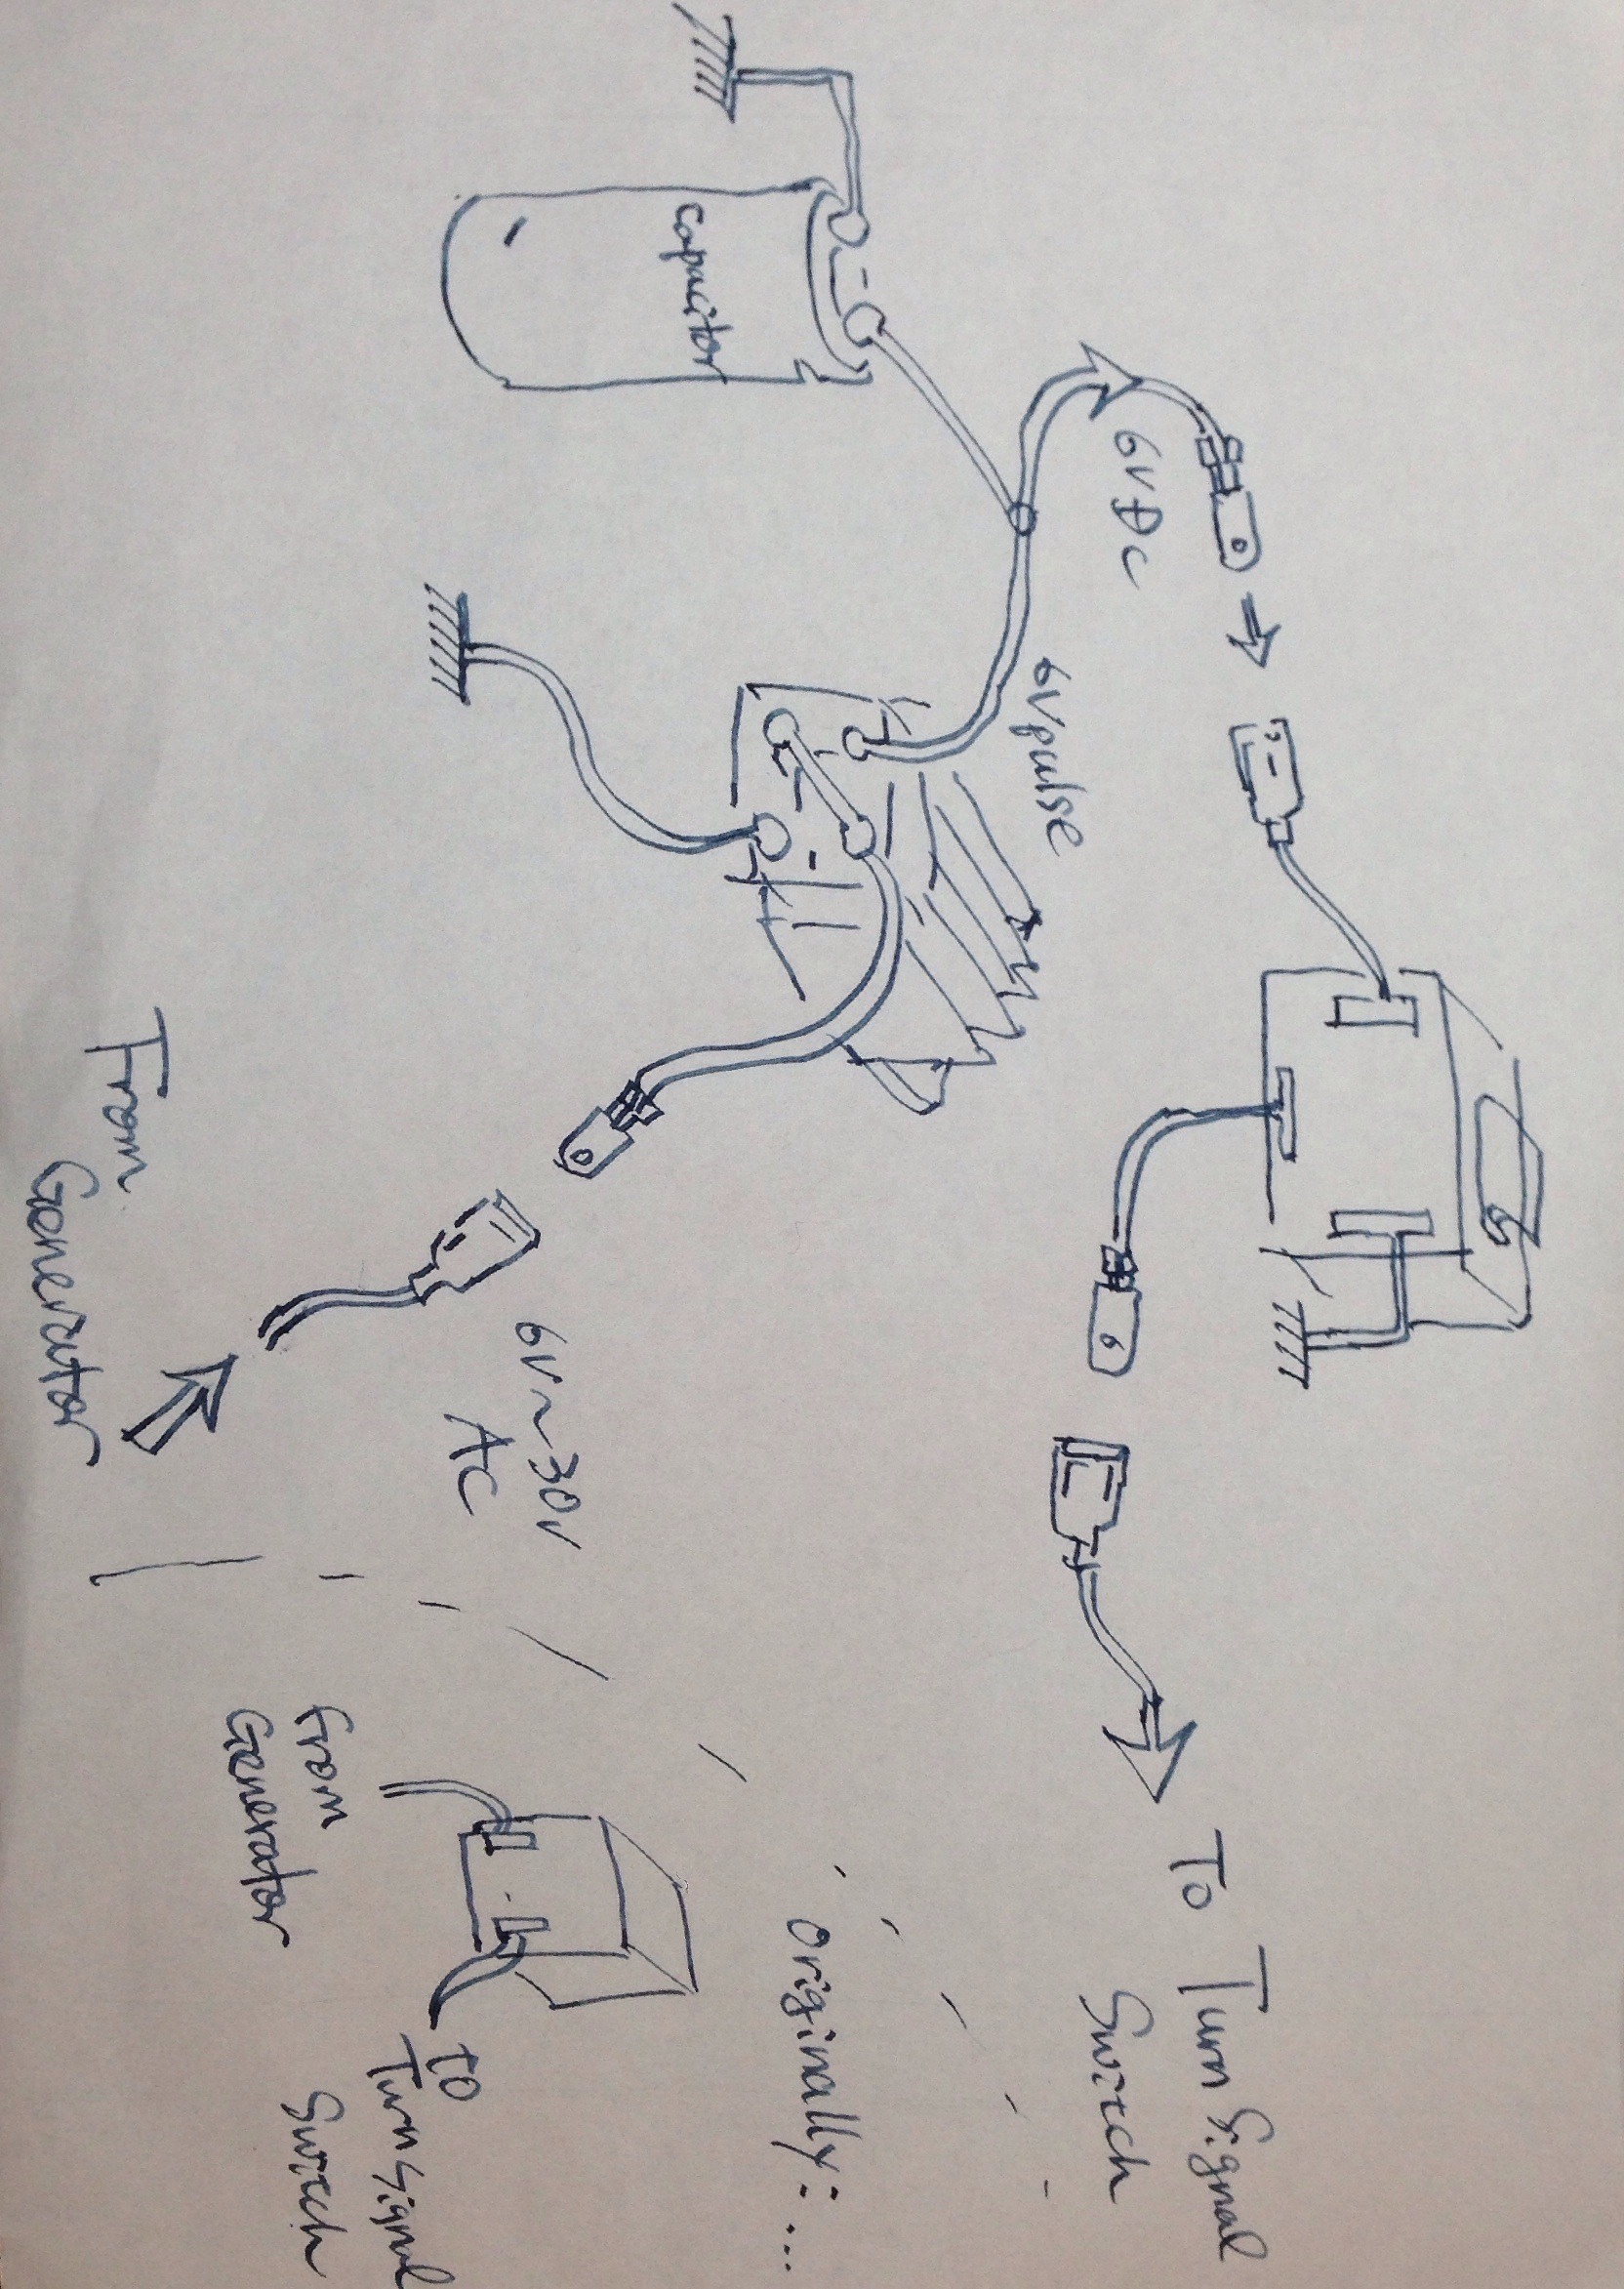 capacitor
6V DC
6V pulse
To Turn Signal
Switch
From
Generator
6V~30V
AC
originally: ...
from
Generator
To
Turn Signal
Switch